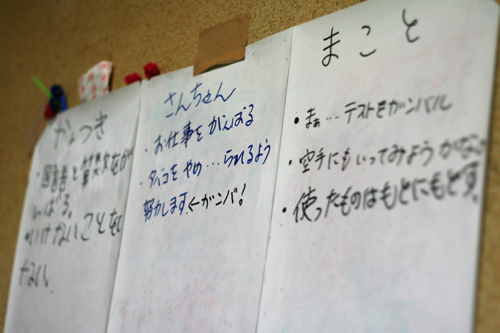 なつき
・国語と算数をがん
ばる。
・いけないことをし
ない。
さんちゃん
・お仕事をがんばる
・タバコをやめ…られるよう
努力します。←ガンバ!
まこと
・まぁ…テストをガンバル
・空手にもいってみようかな
・使ったものはもとにもどす。